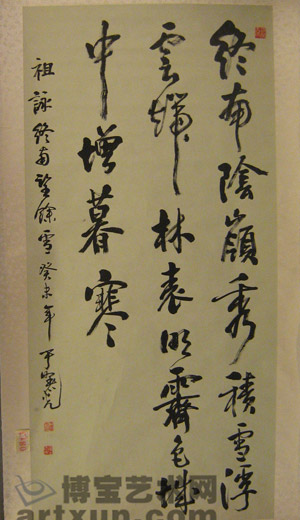 終南陰嶺秀積雪浮
雲端林表明霽色城
中增暮寒
祖詠終南望餘雪癸未年
博宝艺术网
artxun.com